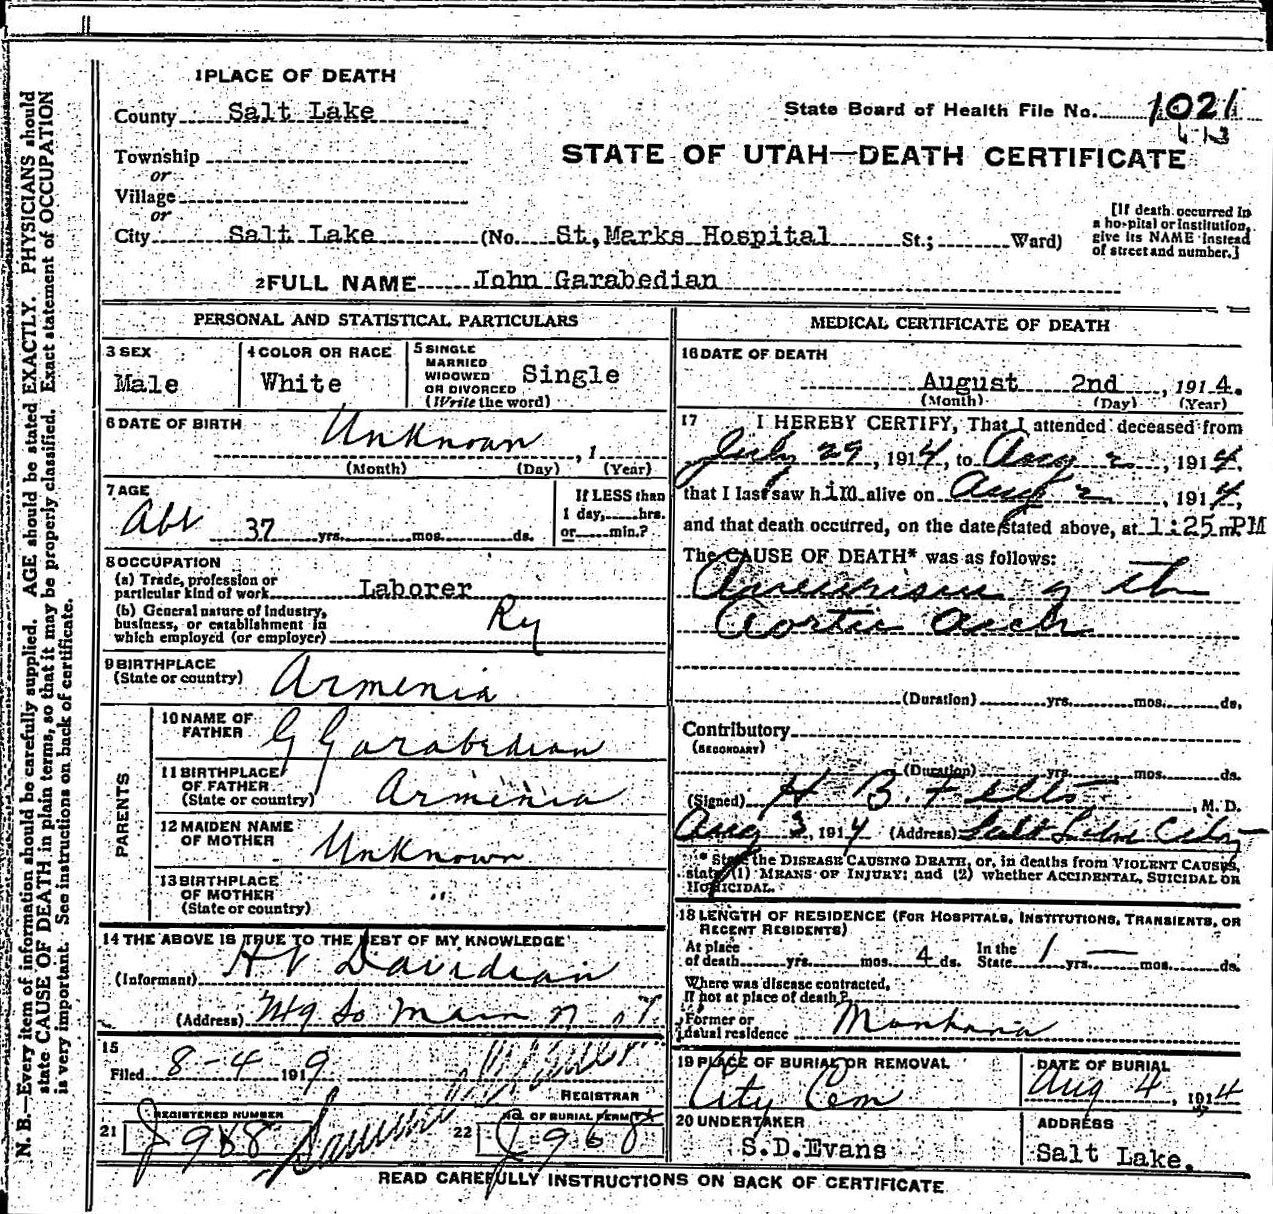 1 PLACE OF DEATH
County Salt Lake
State Board of Health File No. 1021
Township
or
Village
or
STATE OF UTAH—DEATH CERTIFICATE
City Salt Lake (No. St, Marks Hospital St.; Ward)
[If death occurred in a hospital or institution, give its NAME instead of street and number.]
2 FULL NAME John Garabedian
PERSONAL AND STATISTICAL PARTICULARS
3 SEX
Male
4 COLOR OR RACE
White
5 SINGLE
MARRIED
WIDOWED
OR DIVORCED
(Write the word)
Single
6 DATE OF BIRTH
Unknown , 1
(Month) (Day) (Year)
7 AGE
Abt 37 yrs. mos. ds.
If LESS than
1 day, hrs.
or min.?
8 OCCUPATION
(a) Trade, profession or
particular kind of work Laborer
(b) General nature of Industry,
business, or establishment in
which employed (or employer) Ry
9 BIRTHPLACE
(State or country) Armenia
PARENTS
10 NAME OF
FATHER G Garabedian
11 BIRTHPLACE
OF FATHER
(State or country) Armenia
12 MAIDEN NAME
OF MOTHER Unknown
13 BIRTHPLACE
OF MOTHER
(State or country) "
14 THE ABOVE IS TRUE TO THE BEST OF MY KNOWLEDGE
(Informant) Davidian
(Address) So Main
15
Filed 8-4 1919
REGISTRAR
21 REGISTERED NUMBER
J 968
22 No. OF BURIAL PERMIT
J 968
MEDICAL CERTIFICATE OF DEATH
16 DATE OF DEATH
August 2nd , 1914.
(Month) (Day) (Year)
17 I HEREBY CERTIFY, That I attended deceased from
July 29, 1914, to Aug 2, 1914,
that I last saw him alive on Aug 2, 1914,
and that death occurred, on the date stated above, at 1:25 m. PM
The CAUSE OF DEATH* was as follows:
Aneurism of the
Aortic Arch
(Duration) yrs. mos. ds.
Contributory
(SECONDARY)
(Duration) yrs. mos. ds.
(Signed) H B. Felts, M. D.
Aug 3, 1914 (Address) Salt Lake City
* State the DISEASE CAUSING DEATH, or, in deaths from VIOLENT CAUSES,
state (1) MEANS OF INJURY; and (2) whether ACCIDENTAL, SUICIDAL OR
HOMICIDAL.
18 LENGTH OF RESIDENCE (FOR HOSPITALS, INSTITUTIONS, TRANSIENTS, OR
RECENT RESIDENTS)
At place
of death yrs. mos. 4 ds.
In the
State 1 yrs. — mos. ds.
Where was disease contracted,
If not at place of death?
Former or
usual residence Montana
19 PLACE OF BURIAL OR REMOVAL
City Cem
DATE OF BURIAL
Aug 4, 1914
20 UNDERTAKER
S.D.Evans
ADDRESS
Salt Lake.
READ CAREFULLY INSTRUCTIONS ON BACK OF CERTIFICATE
N. B.—Every item of information should be carefully supplied. AGE should be stated EXACTLY. PHYSICIANS should
state CAUSE OF DEATH in plain terms, so that it may be properly classified. Exact statement of OCCUPATION
is very important. See instructions on back of certificate.